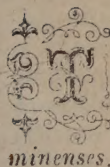 T
minenses